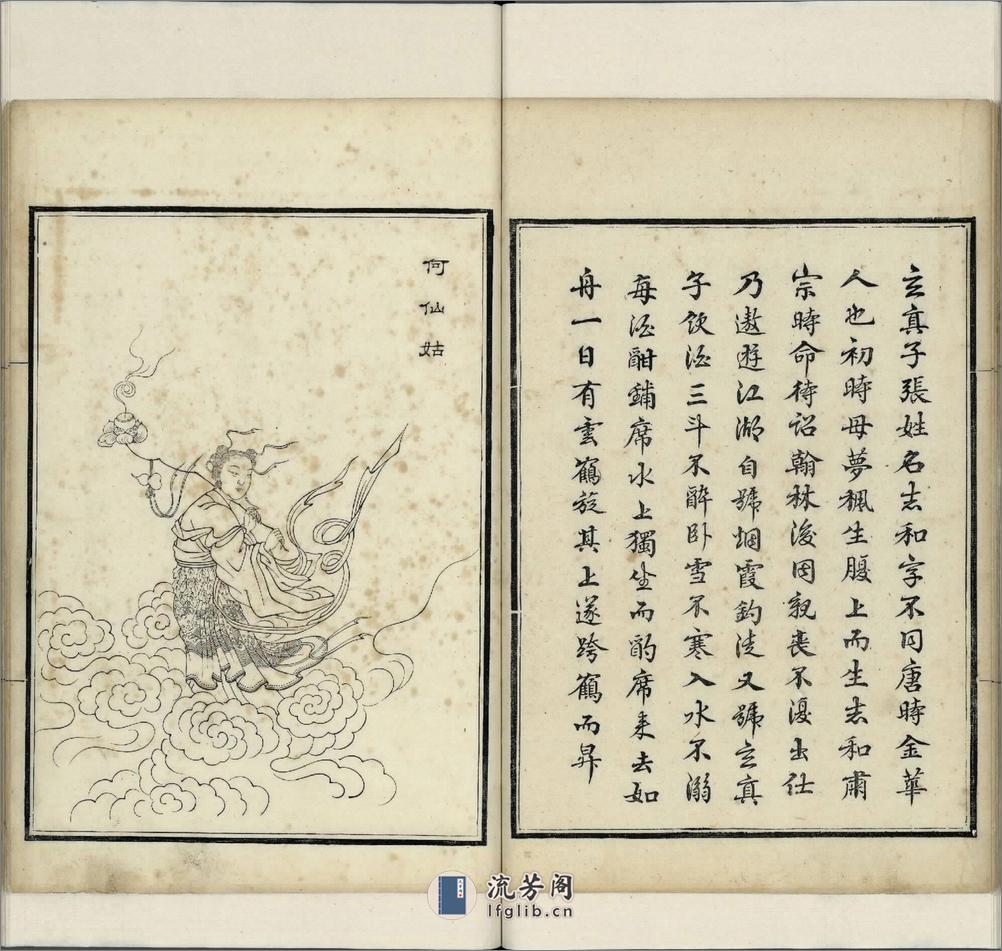 玄真子張姓名志和字不同唐時金華
人也初時母夢楓生腹上而生志和肅
宗時命待詔翰林後因親喪不復出仕
乃遨遊江湖自號烟霞釣徒又號玄真
子飲酒三斗不醉卧雪不寒入水不溺
每酒酣鋪席水上獨坐而酌席来去如
舟一日有雲鶴旋其上遂跨鶴而昇
何仙姑
流芳阁
lfglib.cn